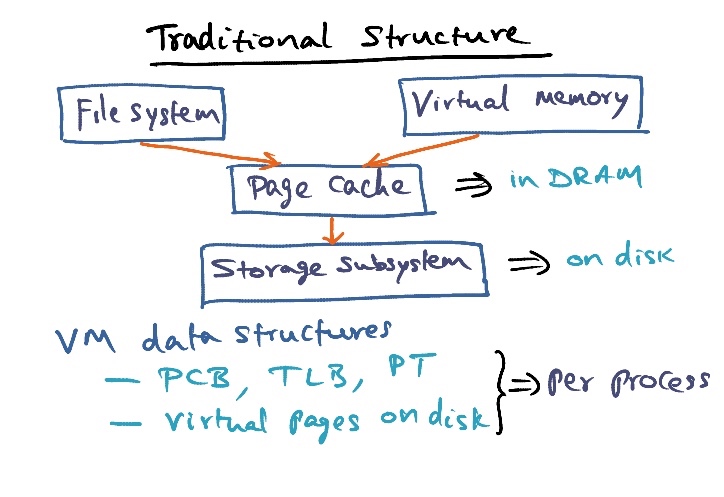 Traditional Structure
File system
Virtual memory
Page Cache ⇒ in DRAM
Storage Subsystem ⇒ on disk
VM data structures
— PCB, TLB, PT
— virtual pages on disk
} ⇒ per process